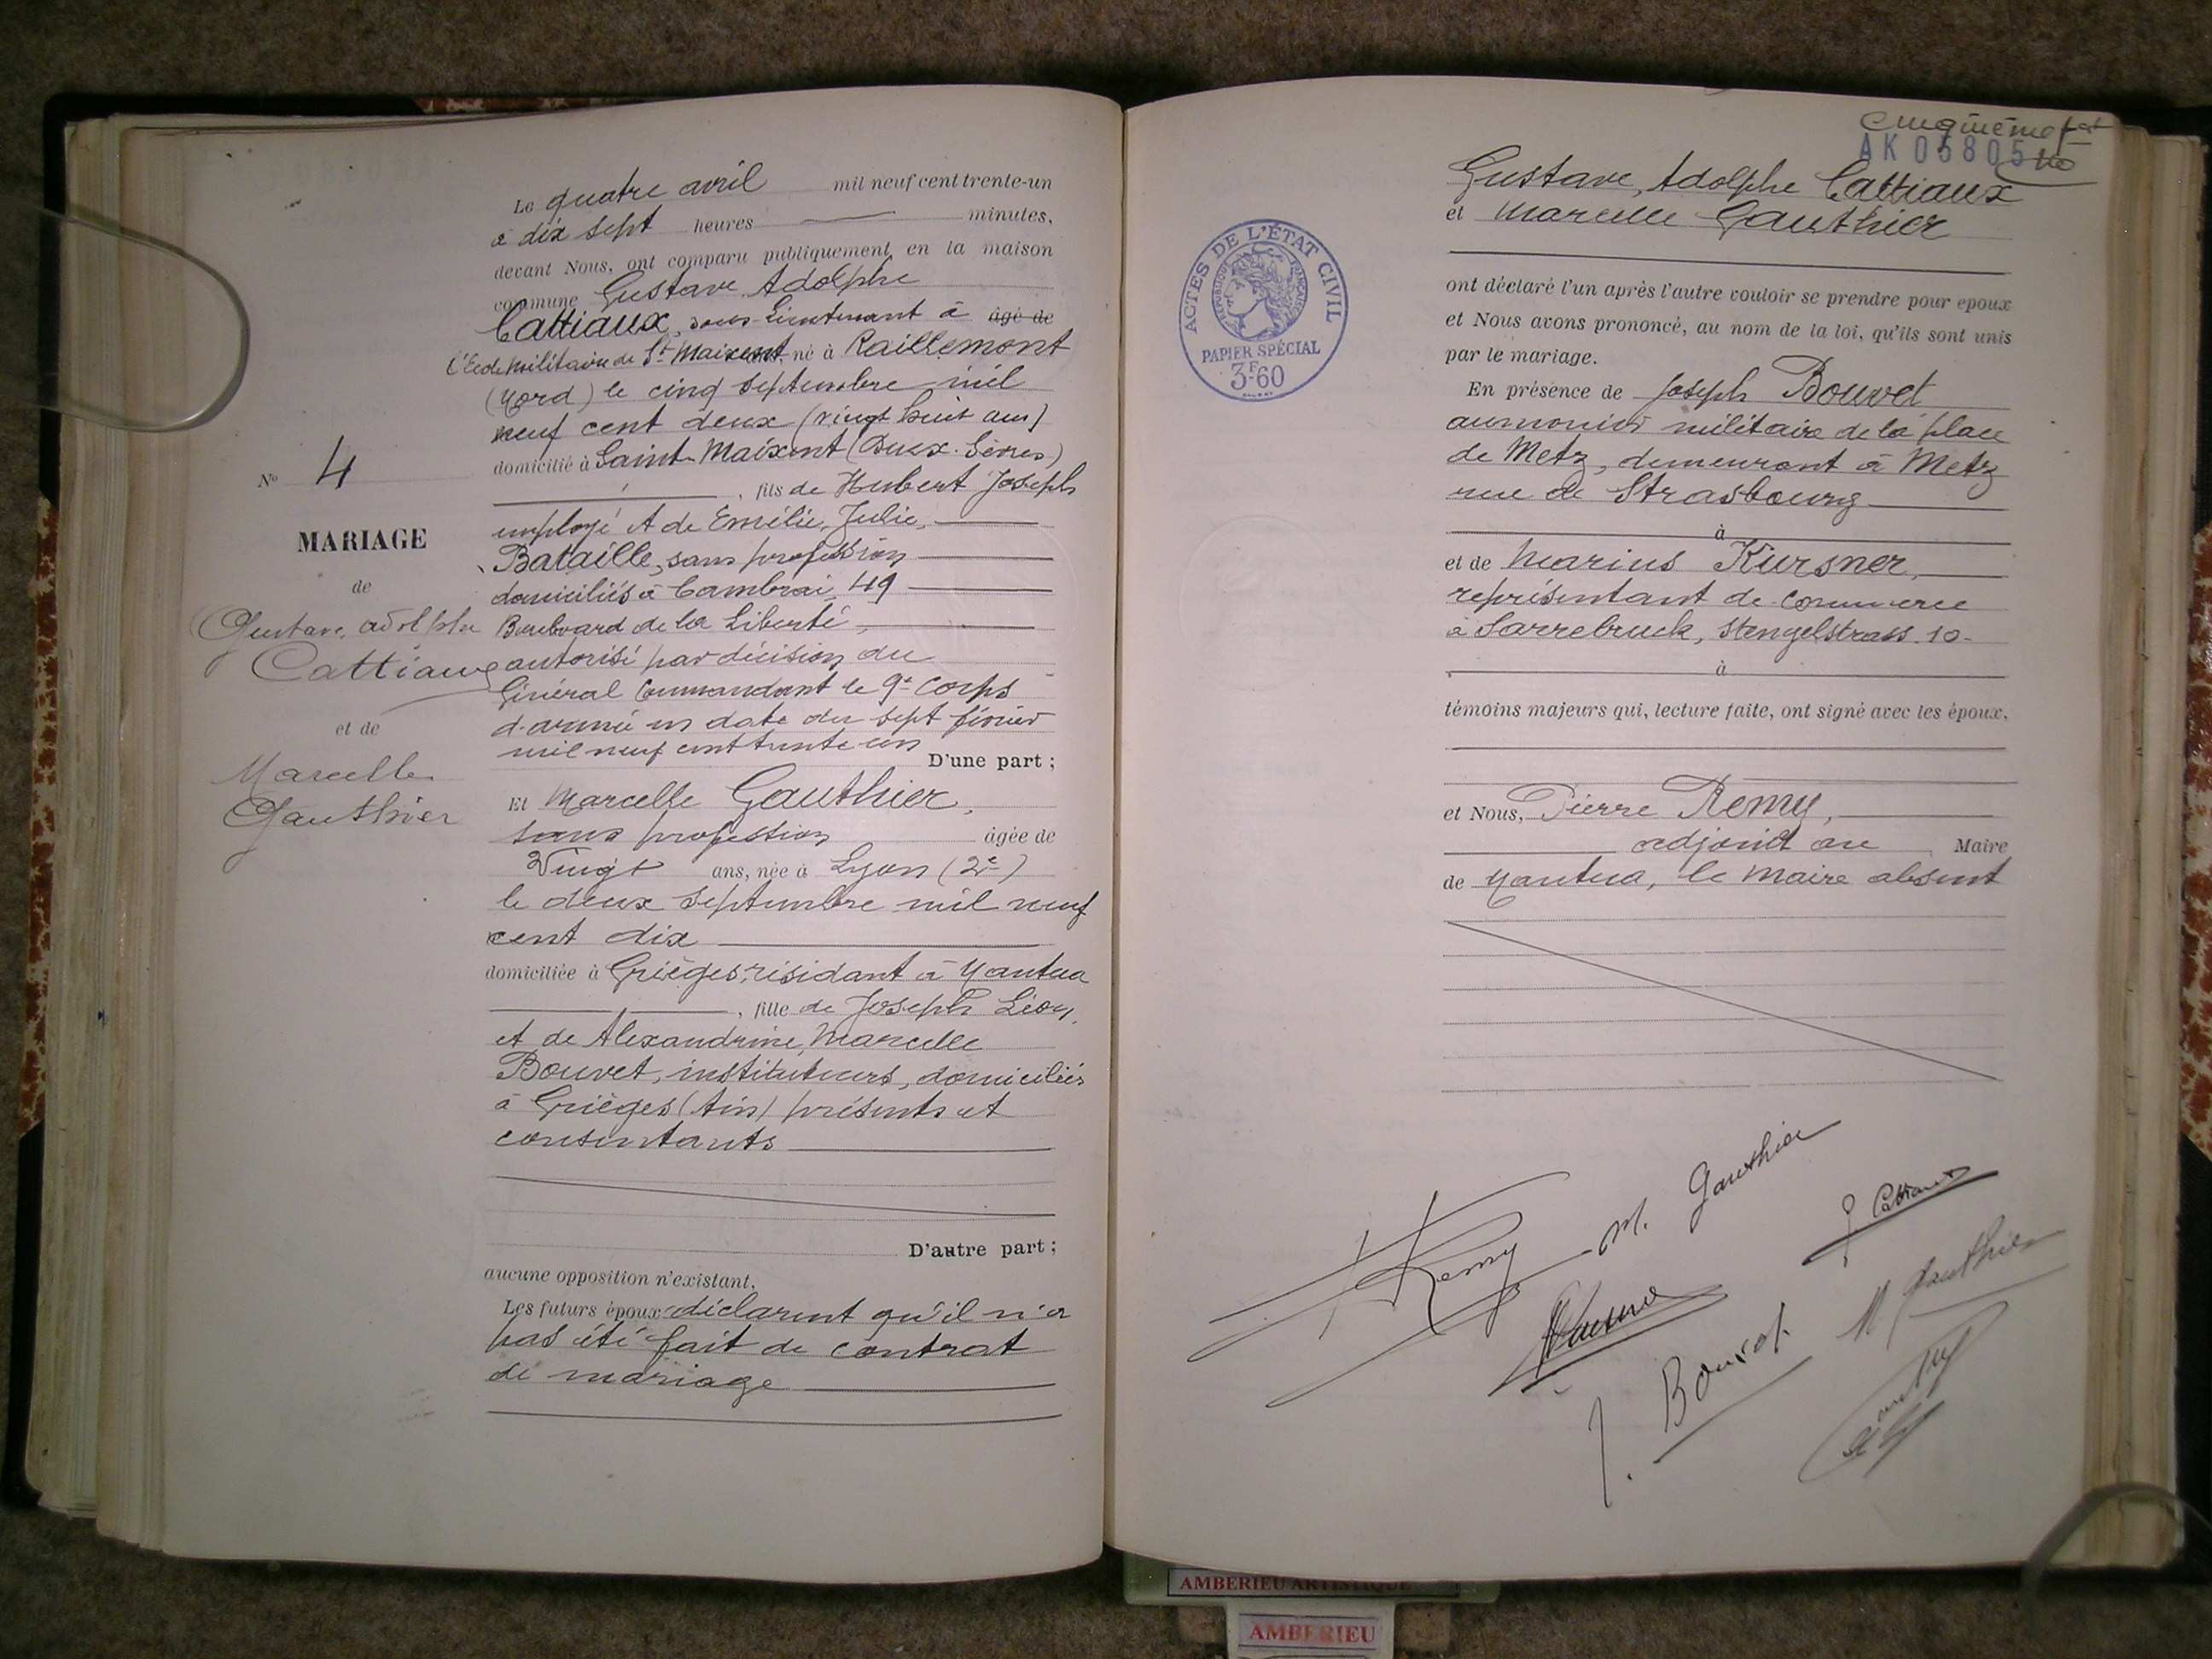 Le quatre avril mil neuf cent trente-un
à dix sept heures minutes,
devant Nous, ont comparu publiquement en la maison
commune Gustave Adolphe
Cattiaux, sous-Lieutenant à âgé de
l'Ecole Militaire de St Maixent ans, né à Raillemont
(Nord) le cinq septembre mil
neuf cent deux (vingt huit ans)
domicilié à Saint-Maixent (Deux-Sèvres)
, fils de Hubert Joseph
employé et de Emélie, Julie,
Bataille, sans profession
domiciliés à Cambrai, 49
Boulevard de la Liberté,
autorisé par décision du
Général Commandant le 9e Corps
d'armée en date du sept février
mil neuf cent trente un
D'une part ;
Et Marcelle Gauthier,
sans profession âgée de
Vingt ans, née à Lyon (2e)
le deux septembre mil neuf
cent dix
domiciliée à Grièges, résidant à Nantua
, fille de Joseph Léon,
et de Alexandrine, Marcelle
Bouvet, instituteurs, domiciliés
à Grièges (Ain) présents et
consentants
D'autre part ;
aucune opposition n'existant,
Les futurs époux déclarent qu'il n'a
pas été fait de contrat
de mariage
No 4
MARIAGE
de
Gustave, Adolphe
Cattiaux
et de
Marcelle
Gauthier
cinquième
AK 05805
Gustave, Adolphe Cattiaux
et Marcelle Gauthier
ACTES DE L'ÉTAT CIVIL
RÉPUBLIQUE FRANÇAISE
PAPIER SPÉCIAL
3F60
ont déclaré l'un après l'autre vouloir se prendre pour époux
et Nous avons prononcé, au nom de la loi, qu'ils sont unis
par le mariage.
En présence de Joseph Bouvet
aumonier militaire de la place
de Metz, demeurant à Metz
rue de Strasbourg
à
et de Marius Kursner,
représentant de commerce
à Sarrebruck, Stengelstrass 10-
à
témoins majeurs qui, lecture faite, ont signé avec les époux,
et Nous, Pierre Remy,
adjoint au Maire
de Nantua, le Maire absent
M. Gauthier
G Cattiaux
Remy
M Gauthier
J. Bouvet
AMBERIEU ARTISTIQUE
AMBERIEU